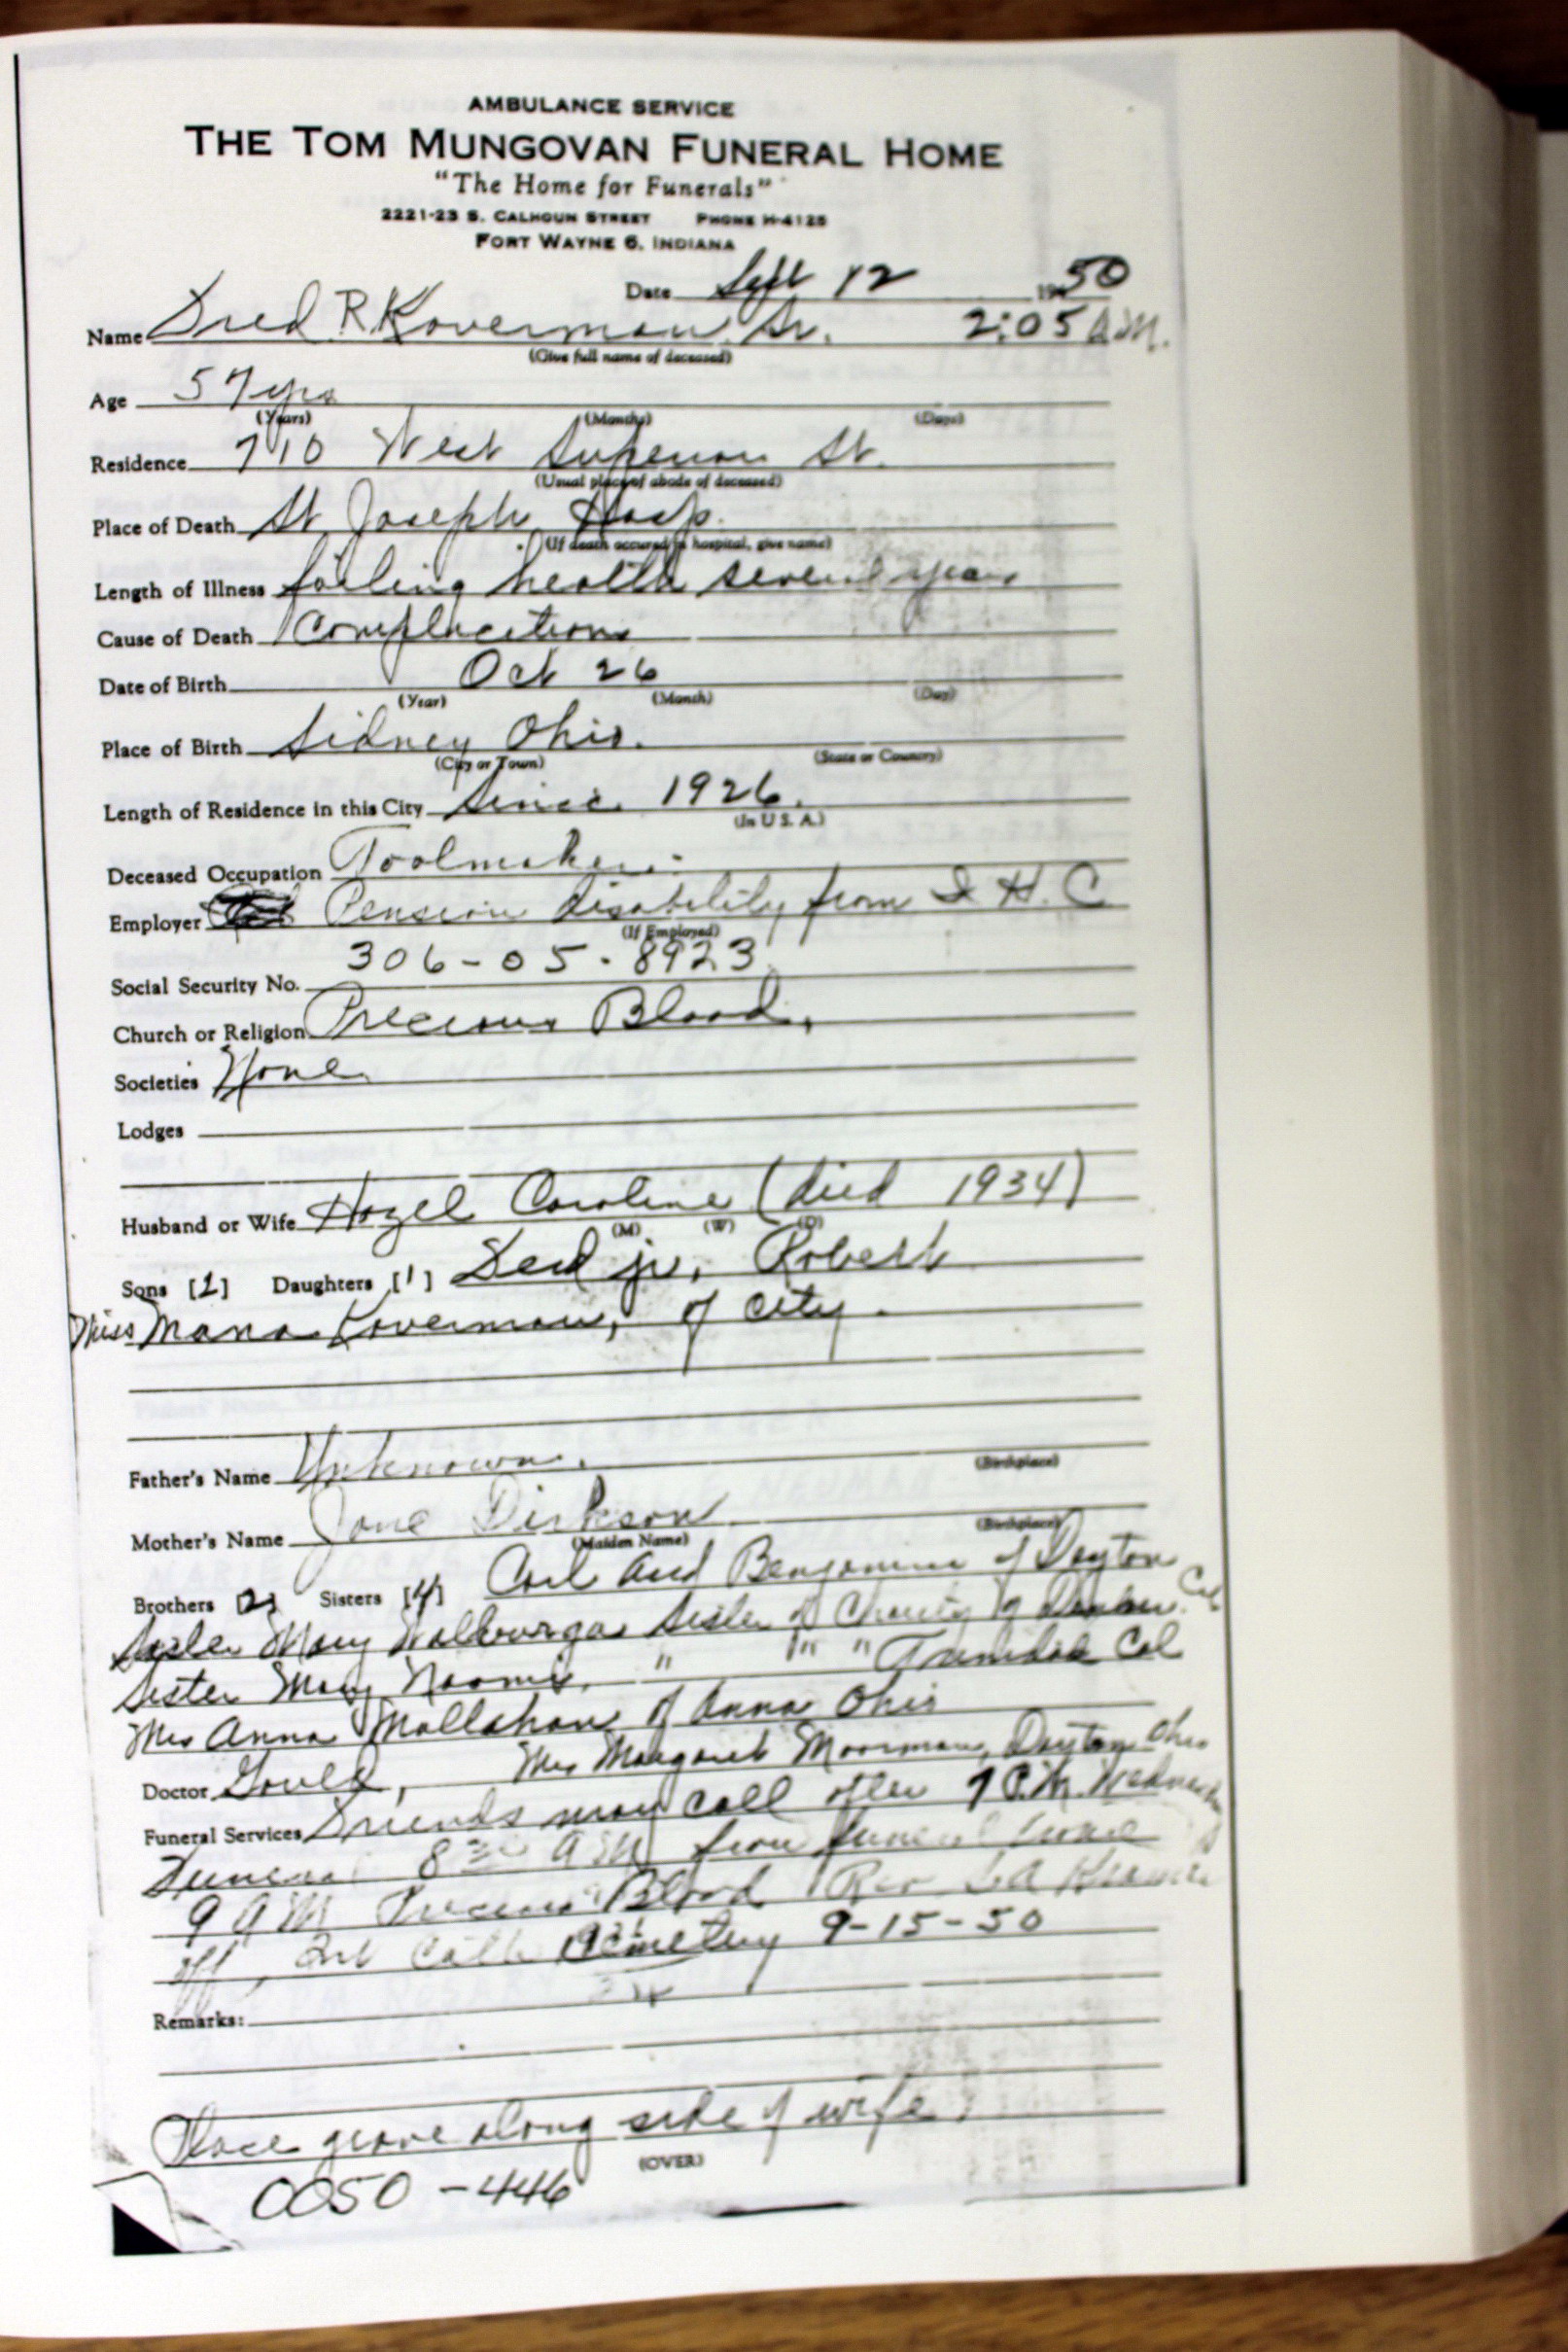 AMBULANCE SERVICE
THE TOM MUNGOVAN FUNERAL HOME
"The Home for Funerals"
2221-23 S. CALHOUN STREET PHONE H-4125
FORT WAYNE 6, INDIANA
Date Sept 12 1950
Name Fred R Koverman, Sr. 2:05 A.M.
(Give full name of deceased)
Age 57 yrs
(Years) (Months) (Days)
Residence 710 West Superior St.
(Usual place of abode of deceased)
Place of Death St Joseph Hosp.
(If death occured in hospital, give name)
Length of Illness failing health several years
Cause of Death Complacations
Date of Birth Oct 26
(Year) (Month) (Day)
Place of Birth Sidney Ohio.
(City or Town) (State or Country)
Length of Residence in this City Since 1926.
(In U.S.A.)
Deceased Occupation Toolmaker.
Employer Pension disability from I H. C
(If Employed)
Social Security No. 306-05-8923
Church or Religion Precious Blood,
Societies None
Lodges
Husband or Wife Hazel Caroline (died 1934)
(M) (W) (D)
Sons [2] Daughters [1] Fred jr, Robert
Miss Koverman, of city.
Father's Name Unknown.
(Birthplace)
Mother's Name Jane Dirkson
(Maiden Name) (Birthplace)
Brothers [2] Sisters [4] Carl and Benjamin of Dayton
Sister Mary Walburga Sister of Charity of Denver Col
Sister Mary Naomi, " " " Trinidad Col
Mrs Anna Mallahan of Anna Ohio
Doctor Gould, Mrs Margaret Moorman, Dayton Ohio
Funeral Services Friends may call after 7 P.M. Wednesday
Funeral 8 30 A M from funeral home
9 A M Precious Blood Rev
off, Cath Cemetery 9-15-50
Remarks:
Place grave along side of wife
(OVER)
0050-446